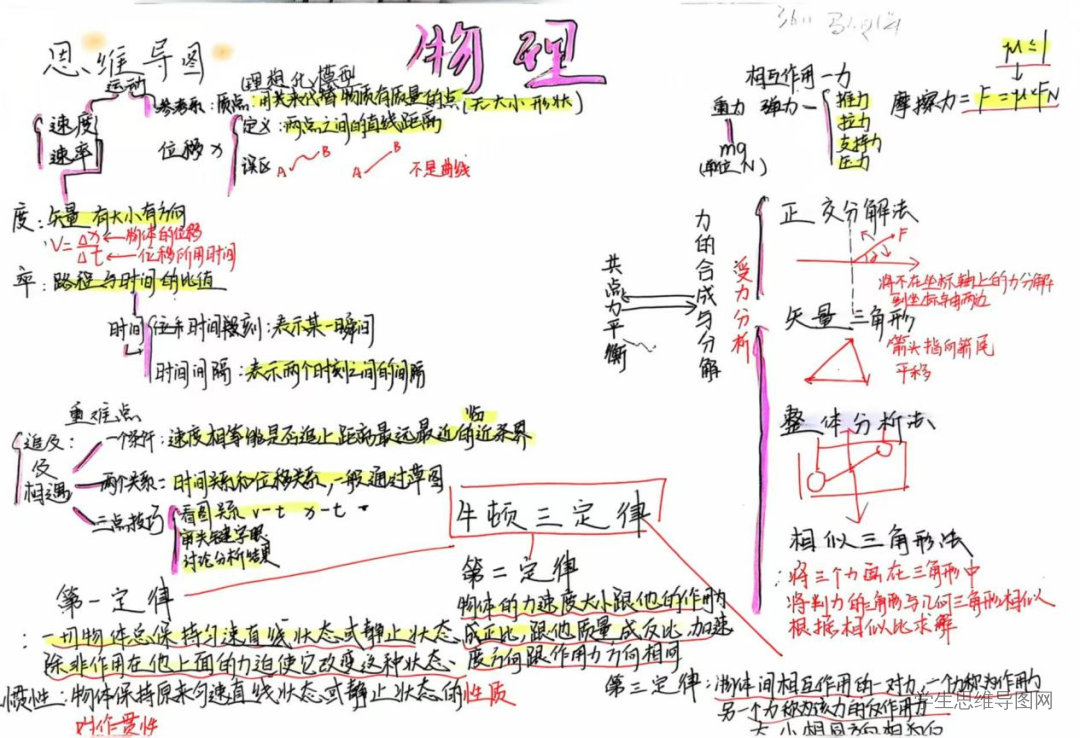 思维导图
物理
运动
(理想化模型
参考系：质点：用来代替物质有质量的点(无大小形状)
速度
速率
位移x
定义：两点之间的直线距离
误区
A B
A B
不是曲线
度：矢量 有大小有方向
V=Δx/Δt
物体的位移
位移所用时间
率：路程与时间的比值
时间
刻：表示某一瞬间
时间间隔：表示两个时刻之间的间隔
重难点
追及及相遇
一个条件：速度相等能是否追上距离最远最近的近条界
临
两个关系：时间关系和位移关系，一般通过草图
三点技巧
看图关系 v-t x-t
审关键字眼
讨论分析结果
相互作用—力
重力
mg
(单位N)
弹力
推力
拉力
支持力
压力
μ≤1
摩擦力=F=μ×FN
共点力平衡
力的合成与分解
受力分析
正交分解法
F
将不在坐标轴上的力分解
到坐标轴两边
矢量三角形
箭头指向箭尾
平移
整体分析法
相似三角形法
：将三个力画在三角形中
将判力的三角形与几何三角形相似
根据相似比求解
牛顿三定律
第一定律
：一切物体总保持匀速直线状态或静止状态
除非作用在他上面的力迫使它改变这种状态、
惯性：物体保持原来匀速直线状态或静止状态的性质
叫作惯性
第二定律
物体的力速度大小跟他的作用力
成正比，跟他质量成反比，加速
度方向跟作用力方向相同
第三定律：物体间相互作用的一对力，一个力称为作用力
另一个力称为该力的反作用力
大小相同方向相反向
学生思维导图网